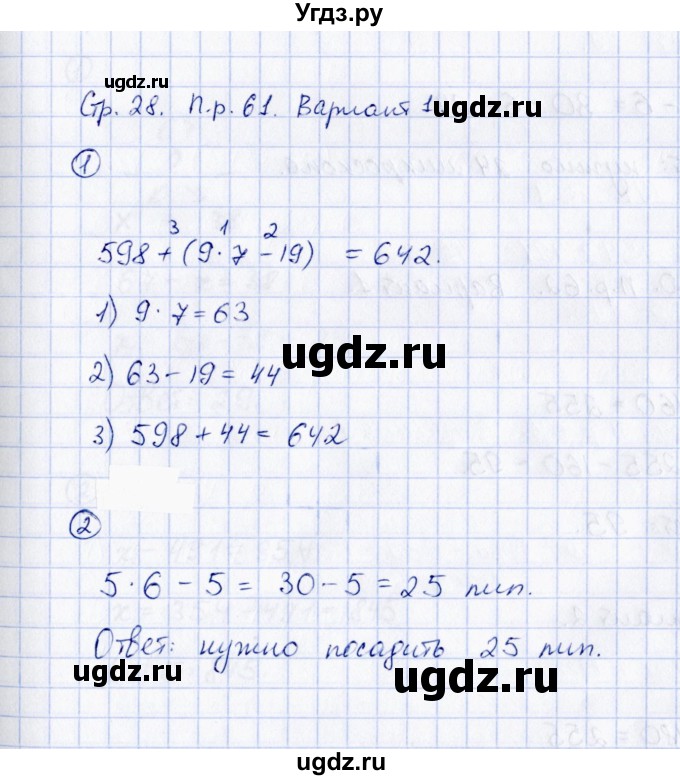 Угдз.ру
ugdz.ru
Стр. 28. П.р. 61. Вариант 1
ugdz.ru
1
3 1 2
598 + (9 · 7 - 19) = 642.
1) 9 · 7 = 63
ugdz.ru
2) 63 - 19 = 44
3) 598 + 44 = 642
2
5 · 6 - 5 = 30 - 5 = 25 лип.
Ответ: нужно посадить 25 лип.
ugdz.ru
ugdz.ru
ugdz.ru